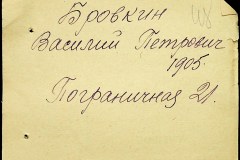 Бровкин
Василий Петрович
1905
Пограничная 21.